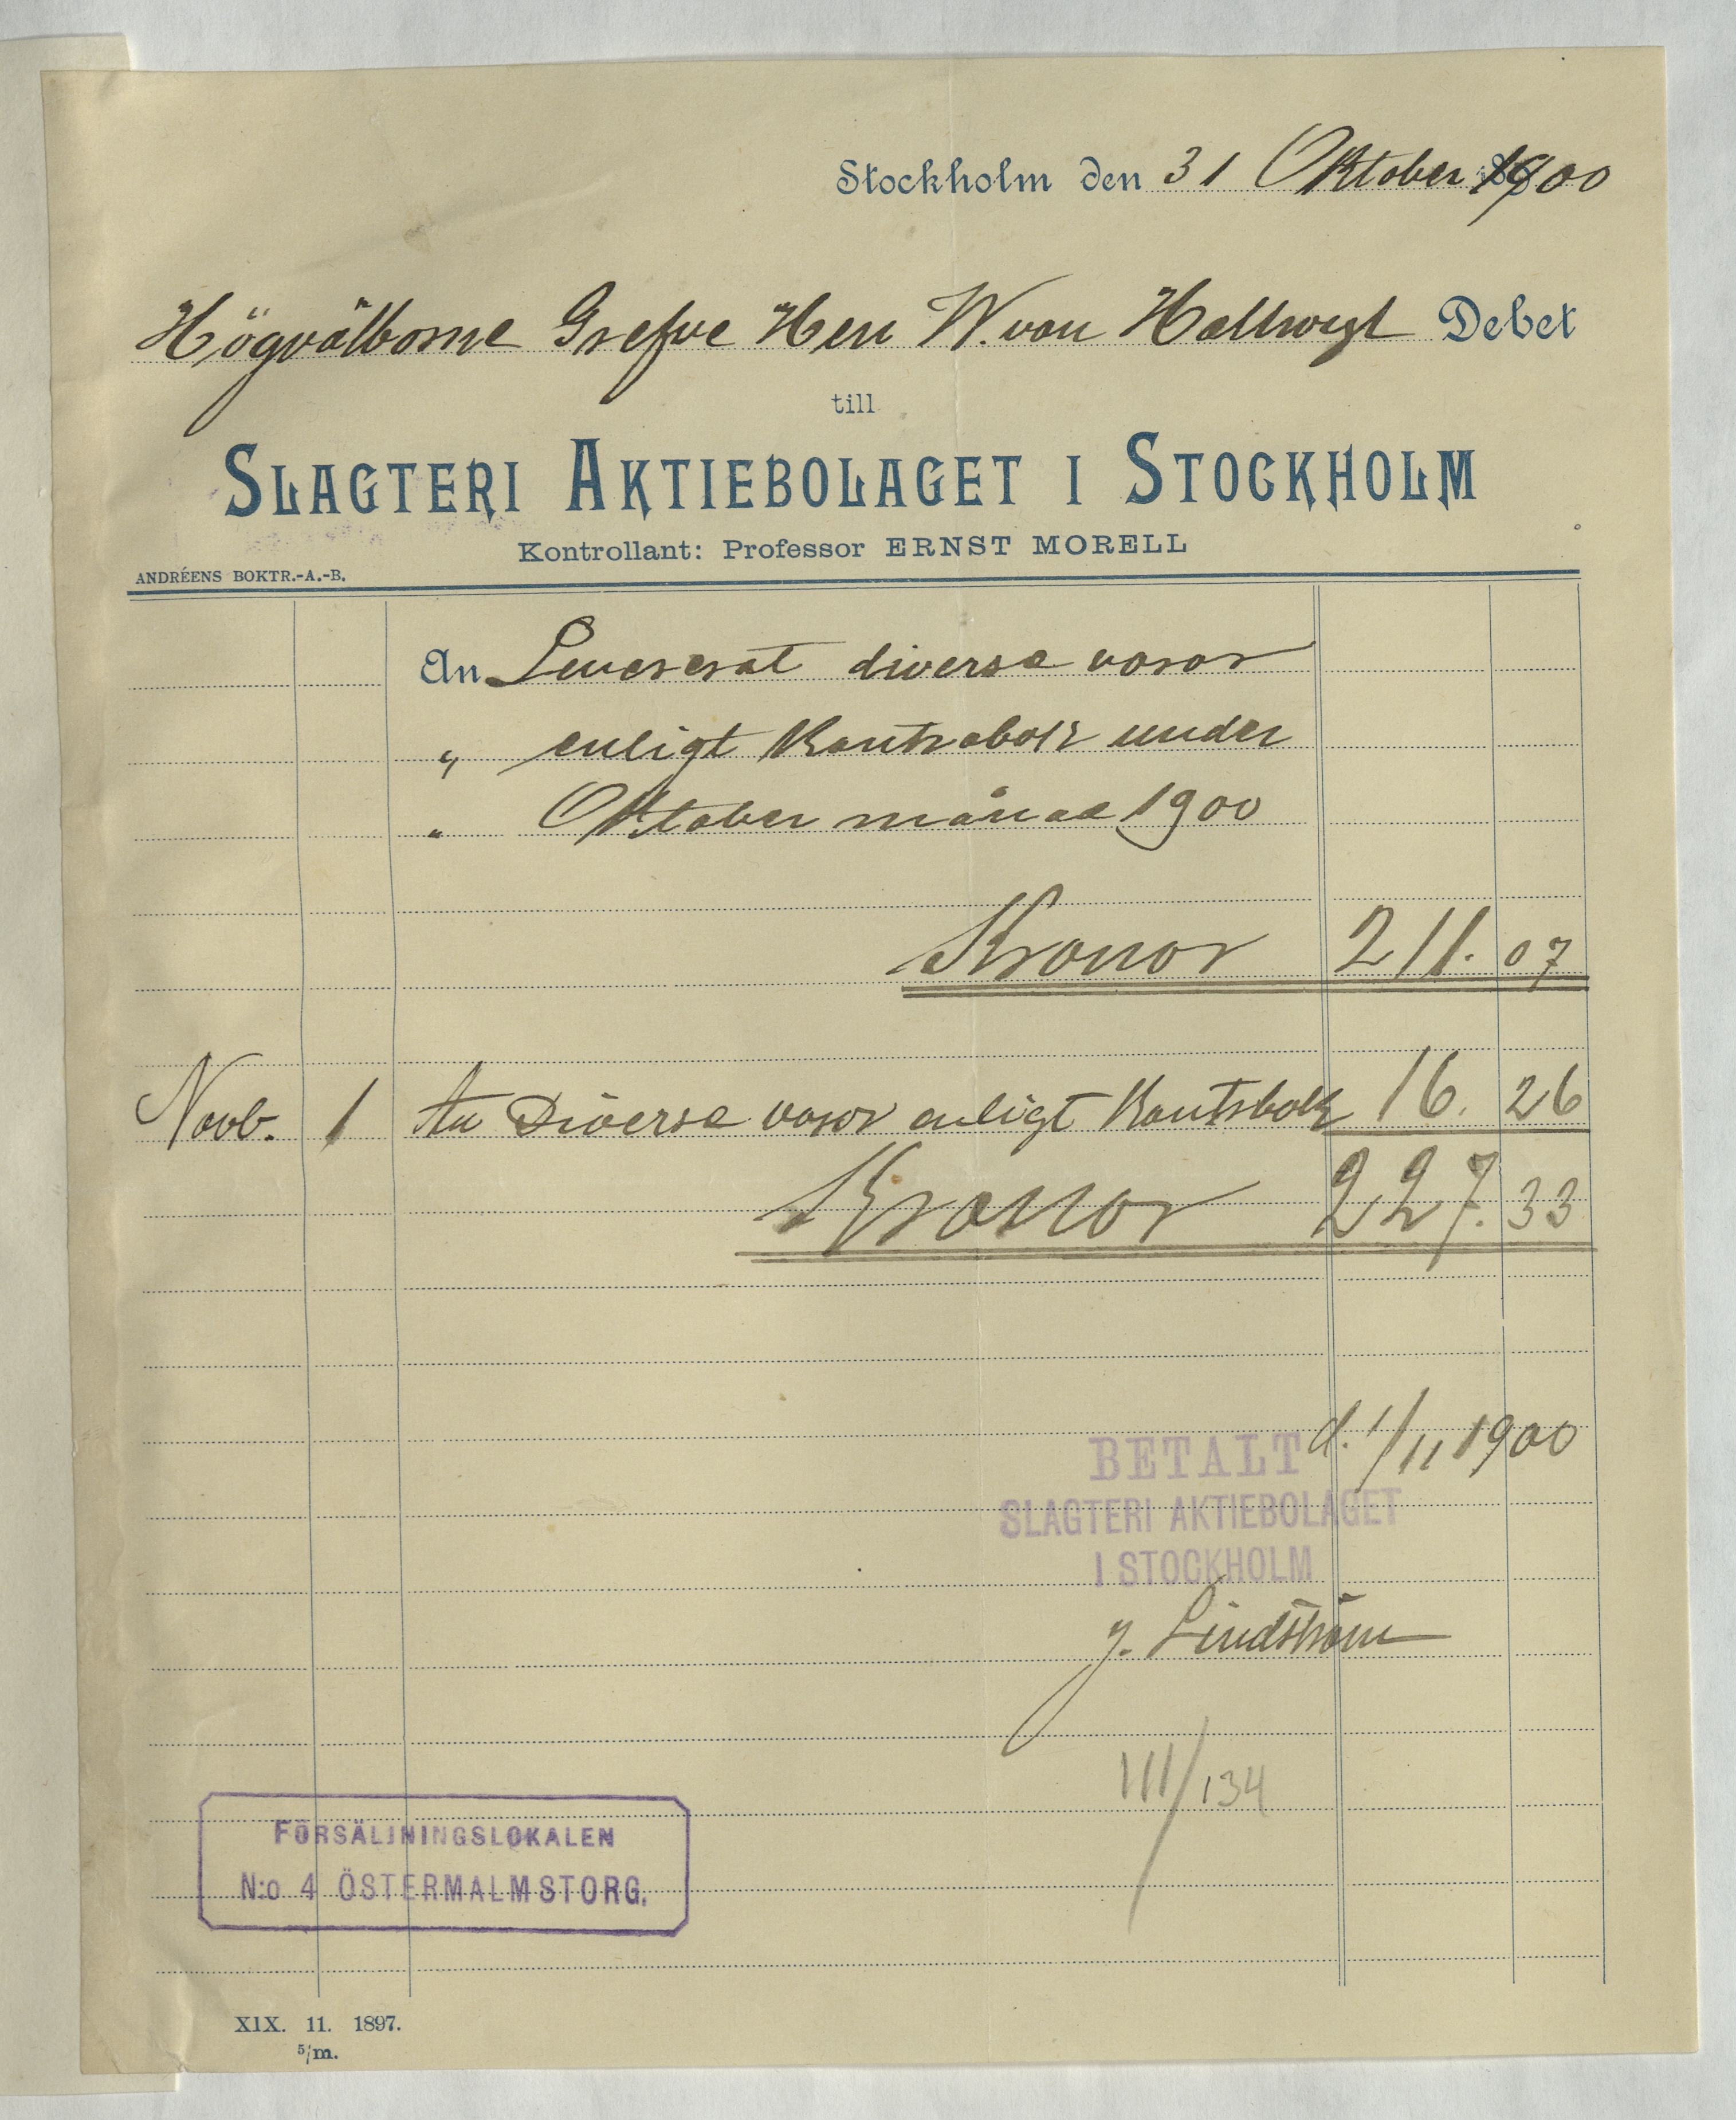 Stockholm den 31 Oktober 1900
Högvälborne Grefve Herr W. von Hallwyl Debet
till
SLAGTERI AKTIEBOLAGET I STOCKHOLM
Kontrollant: Professor ERNST MORELL
ANDRÉENS BOKTR.-A.-B.
An Levererat diverse varor
„ enligt Kontrabok under
„ Oktober månad 1900
Kronor 211. 07
Novb. 1 An Diverse varor enligt Kontrbok 16. 26
Kronor 227. 33
BETALT d. 1/11 1900
SLAGTERI AKTIEBOLAGET
I STOCKHOLM
J. Lindström
111/134
FÖRSÄLJNINGSLOKALEN
N:o 4 ÖSTERMALMSTORG.
XIX. 11. 1897.
5/m.